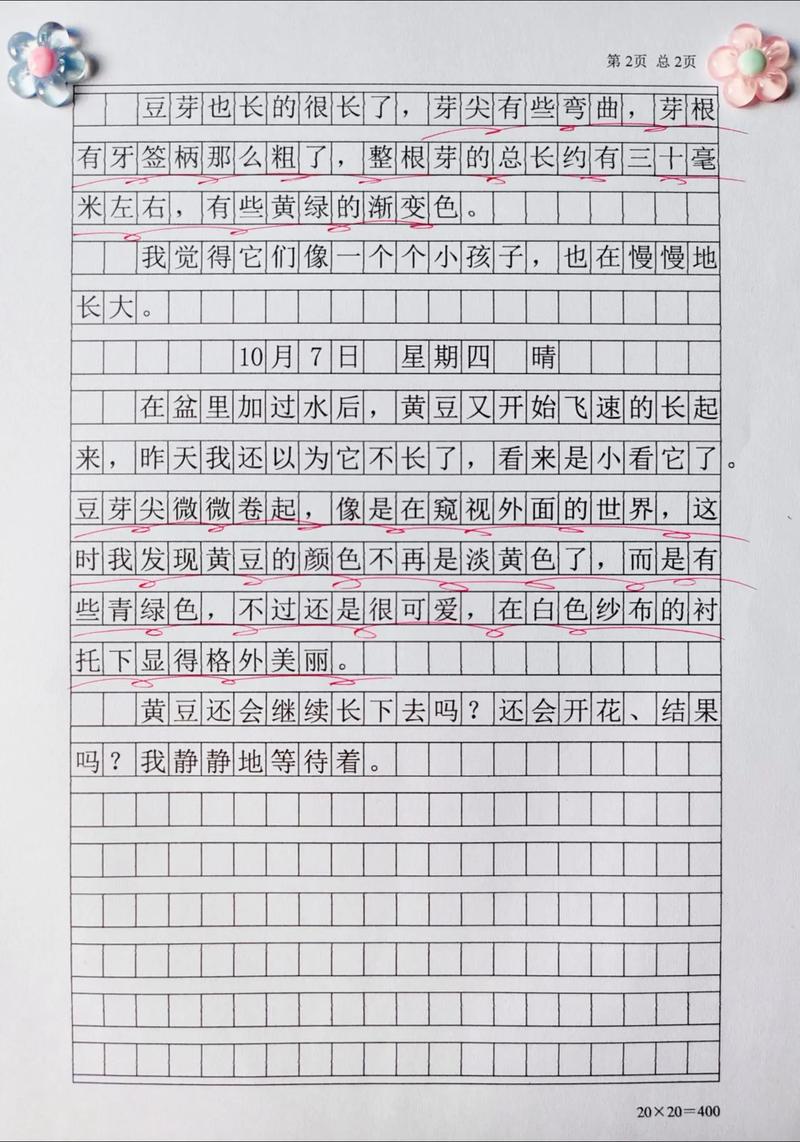 第2页 总2页
豆芽也长的很长了，芽尖有些弯曲，芽根
有牙签柄那么粗了，整根芽的总长约有三十毫
米左右，有些黄绿的渐变色。
我觉得它们像一个个小孩子，也在慢慢地
长大。
10月7日 星期四 晴
在盆里加过水后，黄豆又开始飞速的长起
来，昨天我还以为它不长了，看来是小看它了。
豆芽尖微微卷起，像是在窥视外面的世界，这
时我发现黄豆的颜色不再是淡黄色了，而是有
些青绿色，不过还是很可爱，在白色纱布的衬
托下显得格外美丽。
黄豆还会继续长下去吗？还会开花、结果
吗？我静静地等待着。
20×20=400